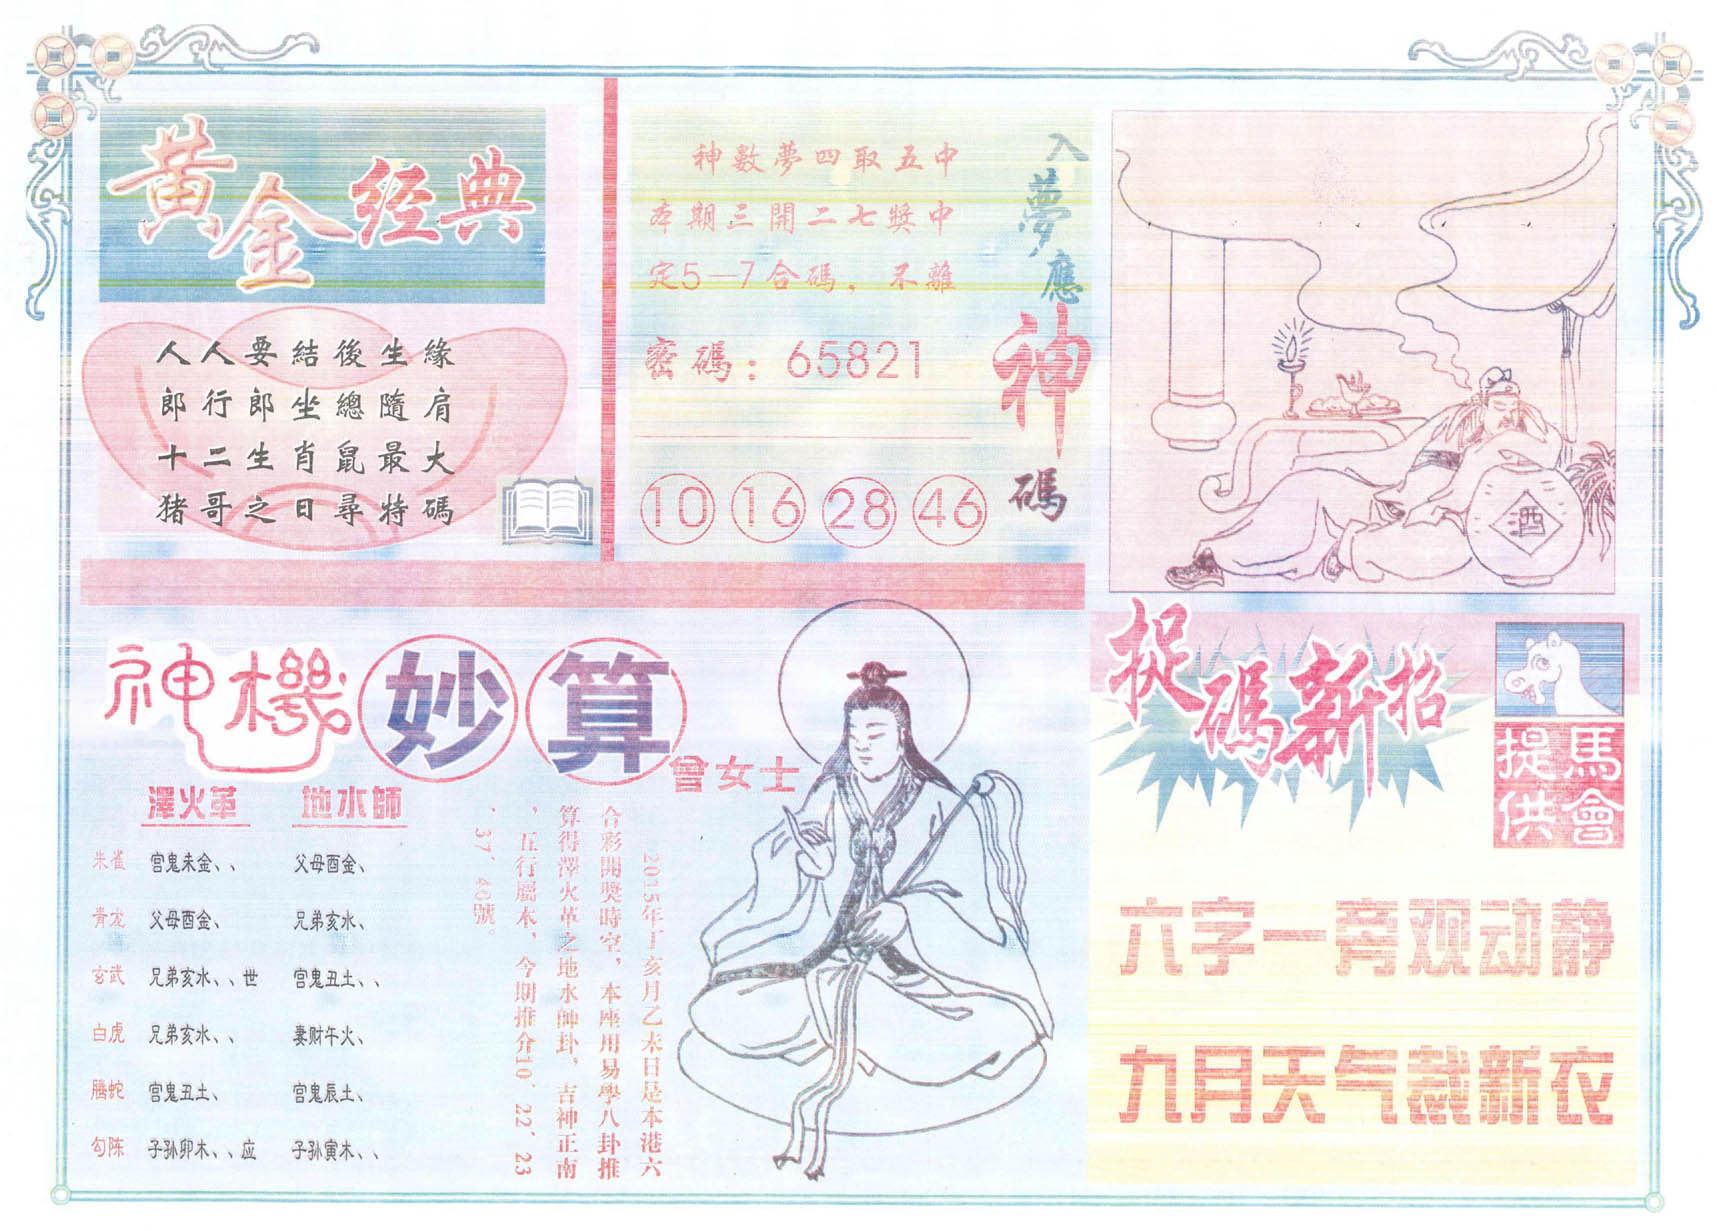 黄金经典
人人要結後生緣
郎行郎坐總隨肩
十二生肖鼠最大
猪哥之日尋特碼
神數夢四取五中
本期三開二七獎中
定5—7合碼，不離
密碼：65821
10 16 28 46
入夢應神碼
酒
神機妙算
曾女士
澤火革 地水師
朱雀 宫鬼未金、、 父母酉金、
青龙 父母酉金、 兄弟亥水、
玄武 兄弟亥水、、世 宫鬼丑土、、
白虎 兄弟亥水、、 妻财午火、
腾蛇 宫鬼丑土、 宫鬼辰土、
勾陈 子孙卯木、、应 子孙寅木、、
2015年丁亥月乙未日是本港六
合彩開獎時空，本座用易學八卦推
算得澤火革之地水師卦，吉神正南
，五行屬木，今期推介10、22、23
、37、40號。
捉碼新招
馬會提供
六字一旁观动静
九月天气裁新衣